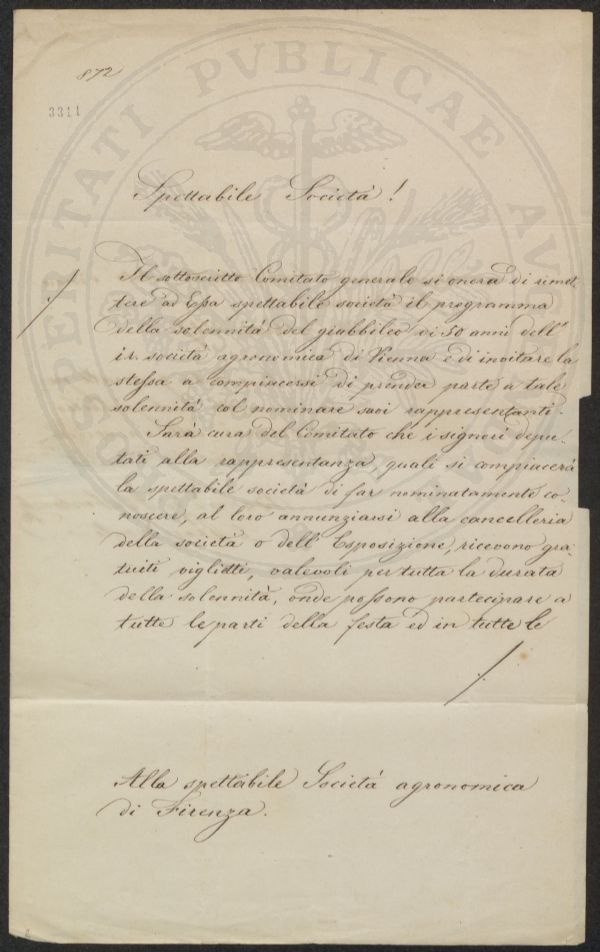 872
3311
PROSPERITATI PVBLICAE AVGENDAE
Spettabile Società!
Il sottoscritto Comitato generale si onora di rimet-
tere ad Essa spettabile società il programma
della solennità del giubbileo di 50 anni dell'
i. r. società agronomica di Vienna e di invitare la
stessa a compiacersi di prender parte a tale
solennità col nominare suoi rappresentanti.
Sarà cura del Comitato che i signori depu-
tati alla rappresentanza, quali si compiacerà
la spettabile società di far nominatamente co-
noscere, al loro annunziarsi alla cancelleria
della società o dell'Esposizione, ricevono gra-
tuiti viglietti, valevoli per tutta la durata
della solennità, onde possono partecipare a
tutte le parti della festa ed in tutte le
./.
Alla spettabile Società agronomica
di Firenza.